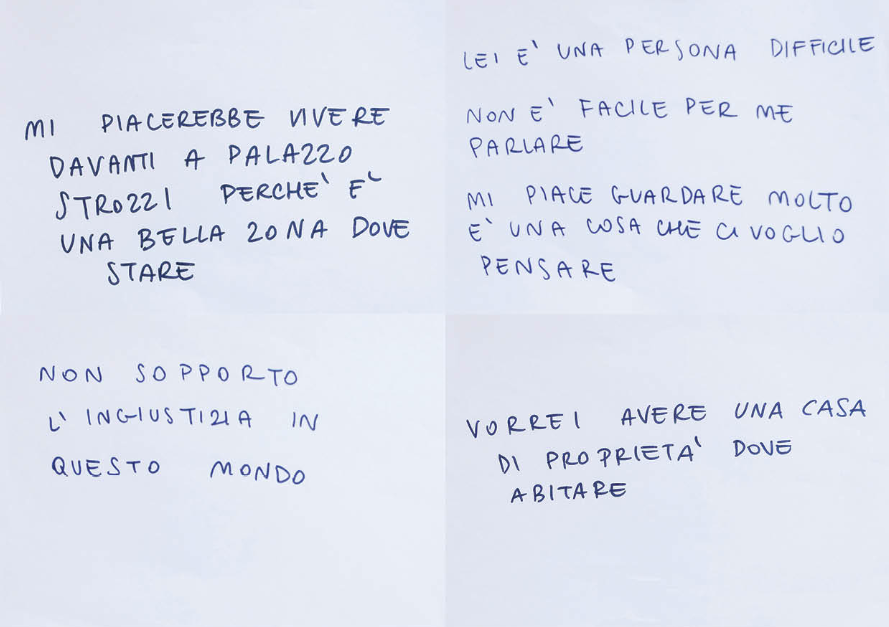 MI PIACEREBBE VIVERE
DAVANTI A PALAZZO
STROZZI PERCHE' E'
UNA BELLA ZONA DOVE
STARE
LEI E' UNA PERSONA DIFFICILE
NON E' FACILE PER ME
PARLARE
MI PIACE GUARDARE MOLTO
E' UNA COSA CHE CI VOGLIO
PENSARE
NON SOPPORTO
L'INGIUSTIZIA IN
QUESTO MONDO
VORREI AVERE UNA CASA
DI PROPRIETA' DOVE
ABITARE